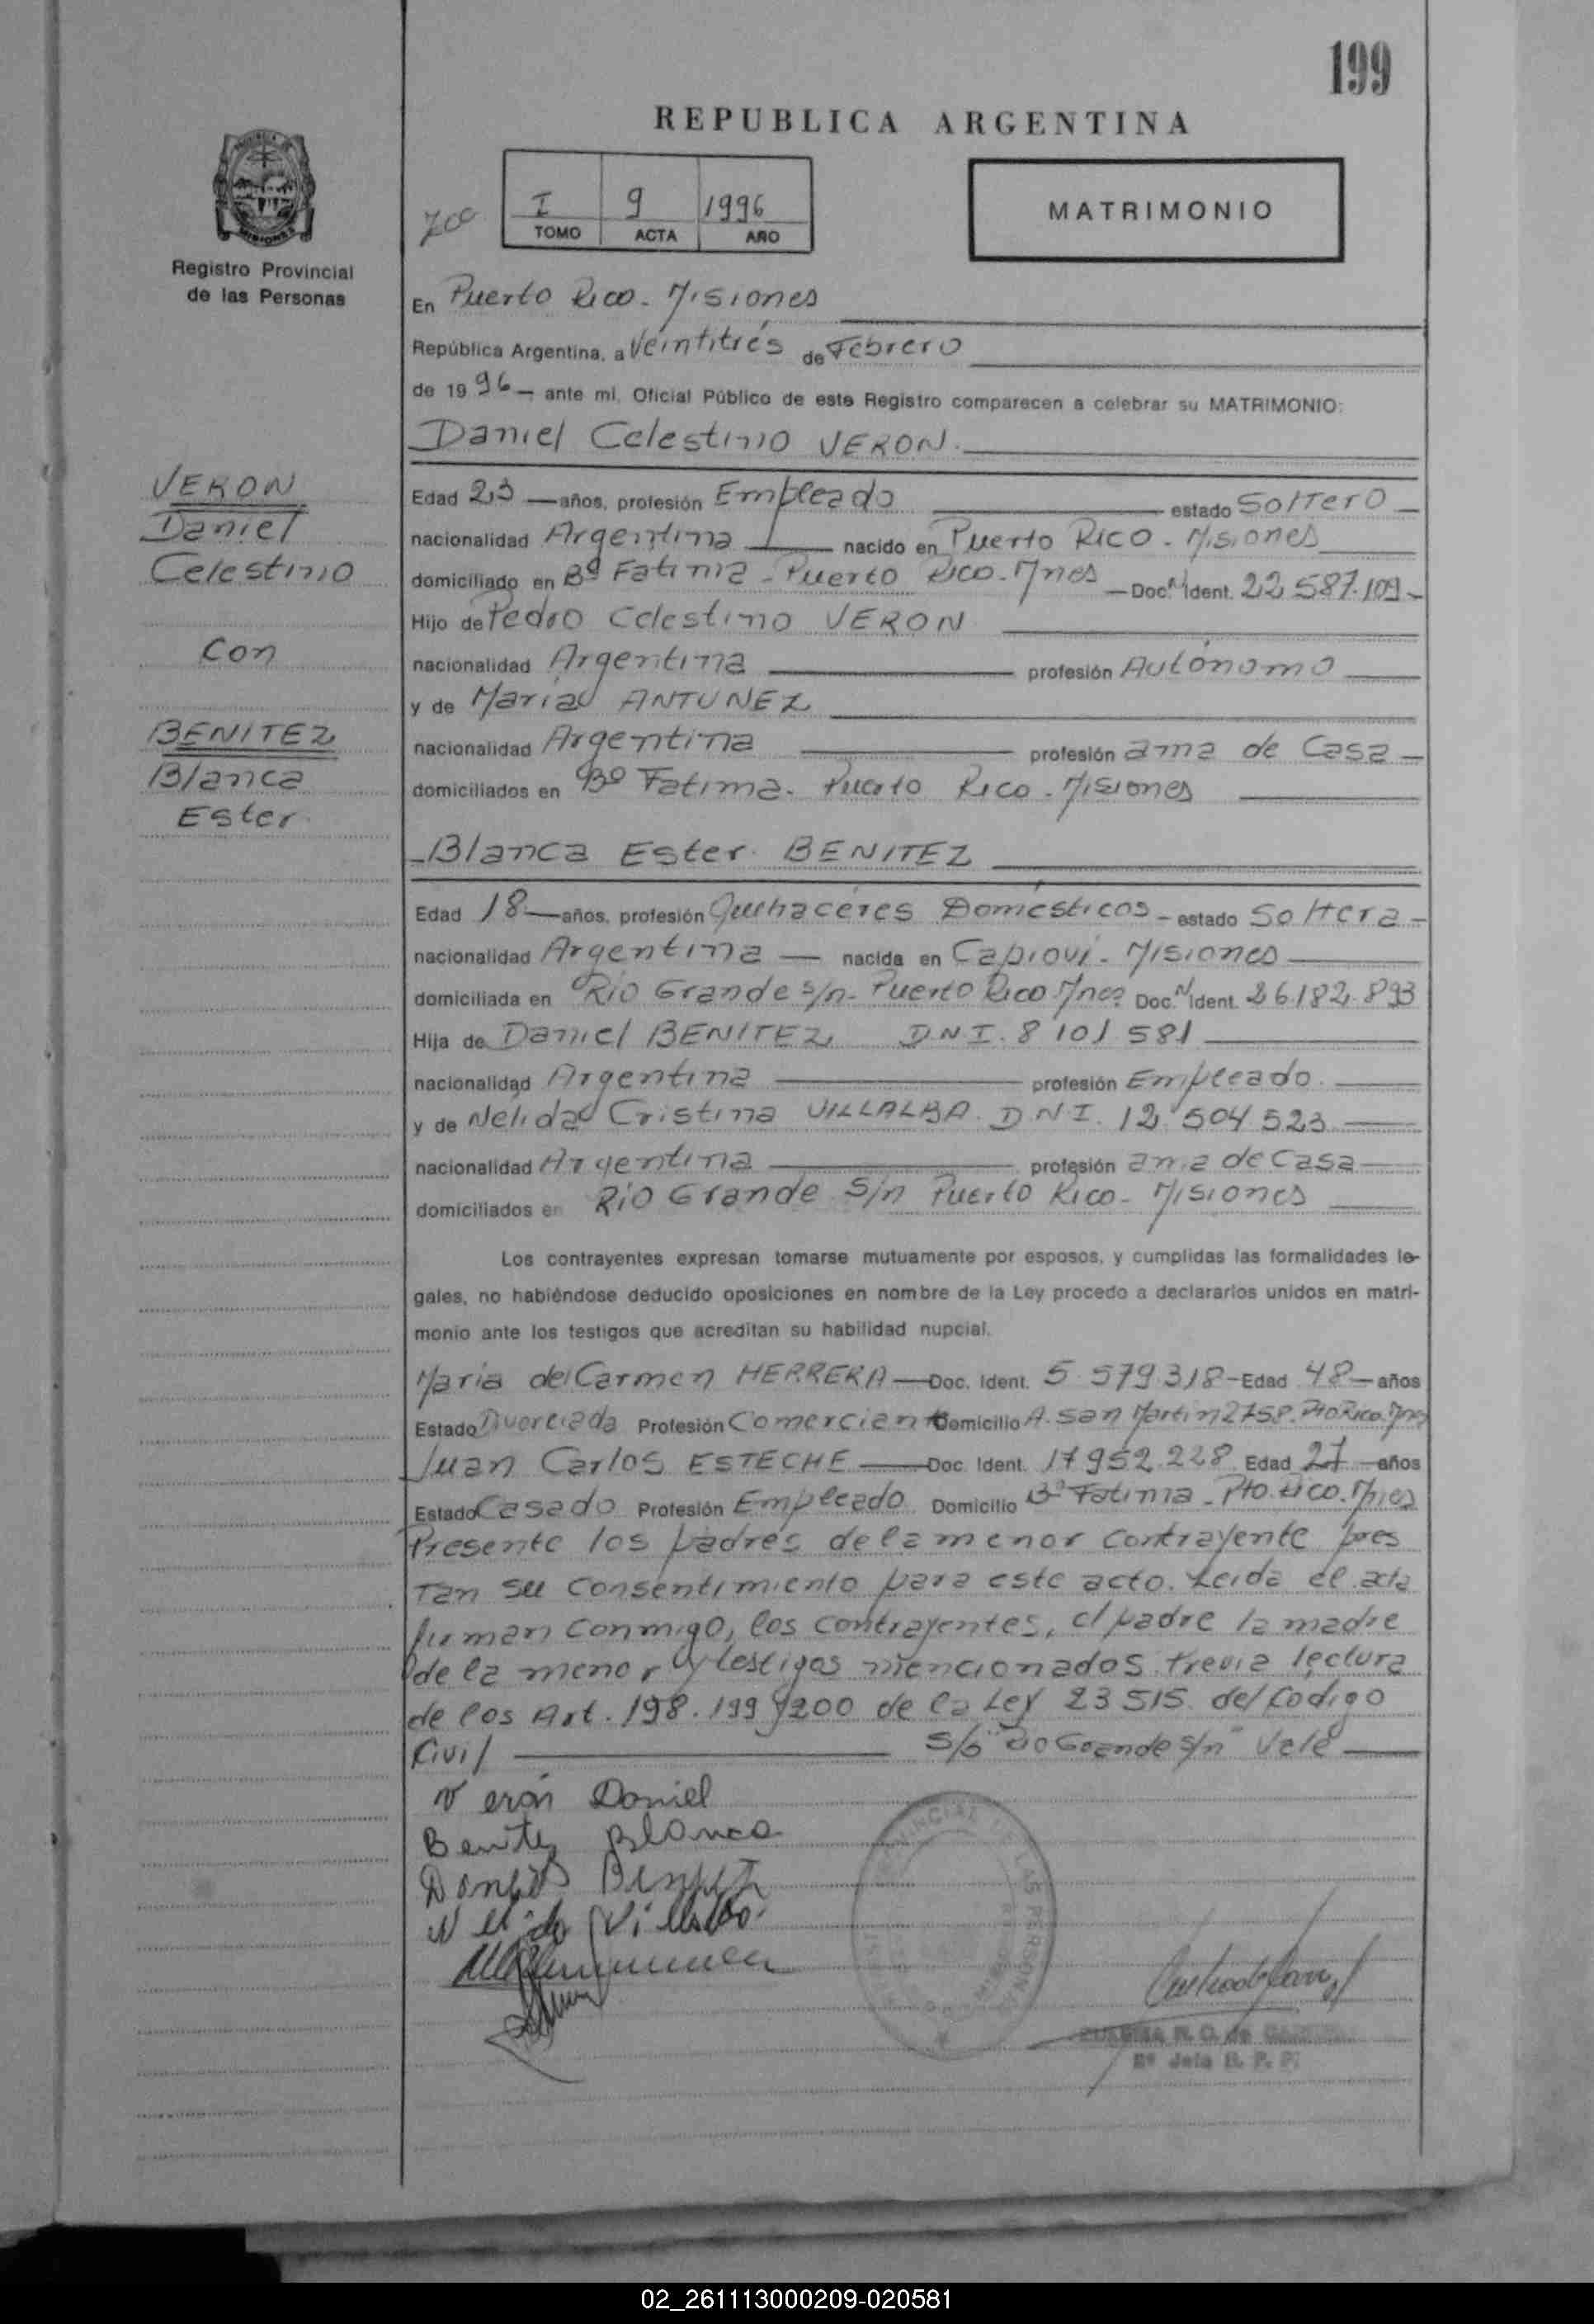 199
REPUBLICA ARGENTINA
I 9 1996
TOMO ACTA AÑO
MATRIMONIO
Registro Provincial
de las Personas
En Puerto Rico - Misiones
República Argentina, a Veintitrés de Febrero
de 1996 - ante mi, Oficial Público de este Registro comparecen a celebrar su MATRIMONIO:
Daniel Celestino VERON.
VERON
Daniel
Celestino
Con
BENITEZ
Blanca
Ester
Edad 23 años, profesión Empleado estado Soltero
nacionalidad Argentina nacido en Puerto Rico - Misiones
domiciliado en Bº Fatima - Puerto Rico - Mnes - Doc. N Ident. 22 587.109 -
Hijo de Pedro Celestino VERON
nacionalidad Argentina profesión Autónomo
y de Maria ANTUNEZ
nacionalidad Argentina profesión ama de Casa
domiciliados en Bº Fatima - Puerto Rico - Misiones
Blanca Ester BENITEZ
Edad 18 años, profesión Quehaceres Domésticos - estado Soltera -
nacionalidad Argentina nacida en Capiovi - Misiones
domiciliada en Rio Grande s/n - Puerto Rico Mnes Doc. N Ident. 26.182.893
Hija de Daniel BENITEZ D.N.I. 8 101 581
nacionalidad Argentina profesión Empleado
y de Nelida Cristina VILLALBA. D.N.I. 12 504 523
nacionalidad Argentina profesión ama de Casa
domiciliados en Rio Grande S/n Puerto Rico - Misiones
Los contrayentes expresan tomarse mutuamente por esposos, y cumplidas las formalidades le-
gales, no habiéndose deducido oposiciones en nombre de la Ley procedo a declararlos unidos en matri-
monio ante los testigos que acreditan su habilidad nupcial.
Maria del Carmen HERRERA Doc. Ident. 5 579.318 - Edad 48 años
Estado Divorciada Profesión Comerciante Domicilio A. San Martin 2758. Pto Rico. Mnes
Juan Carlos ESTECHE Doc. Ident. 17 952.228 Edad 27 años
Estado Casado Profesión Empleado Domicilio Bº Fatima - Pto. Rico. Mnes
Presente los padres de la menor contrayente pres
tan su consentimiento para este acto. Leida el acta
firman conmigo, los contrayentes, el padre la madre
de la menor y testigos mencionados. Previa lectura
de los Art. 198. 199 y 200 de la Ley 23 515. del Codigo
Civil S/b "Rio Grande s/n" Vale
Verón Daniel
Benitez Blanca
Benitez
Nelida Villalba
2º Jefe R. P. P.
02_261113000209-020581